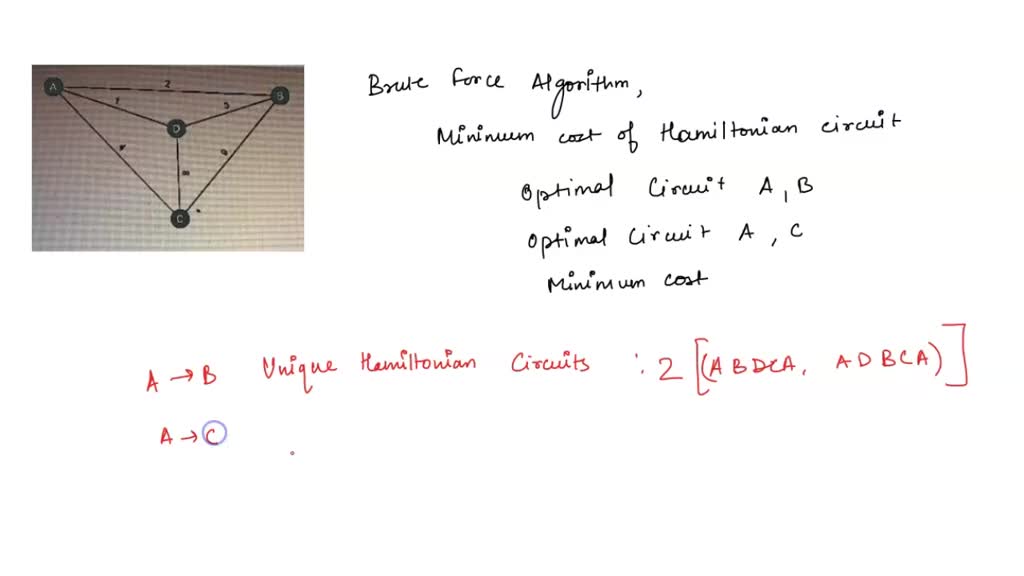 A
2
B
1
D
C
Brute Force Algorithm,
Mininum cost of Hamiltonian circuit
Optimal Circuit A, B
Optimal Circuit A, C
Minimum cost
A → B Unique Hamiltonian Circuits : 2 [(ABDCA, ADBCA)]
A → C